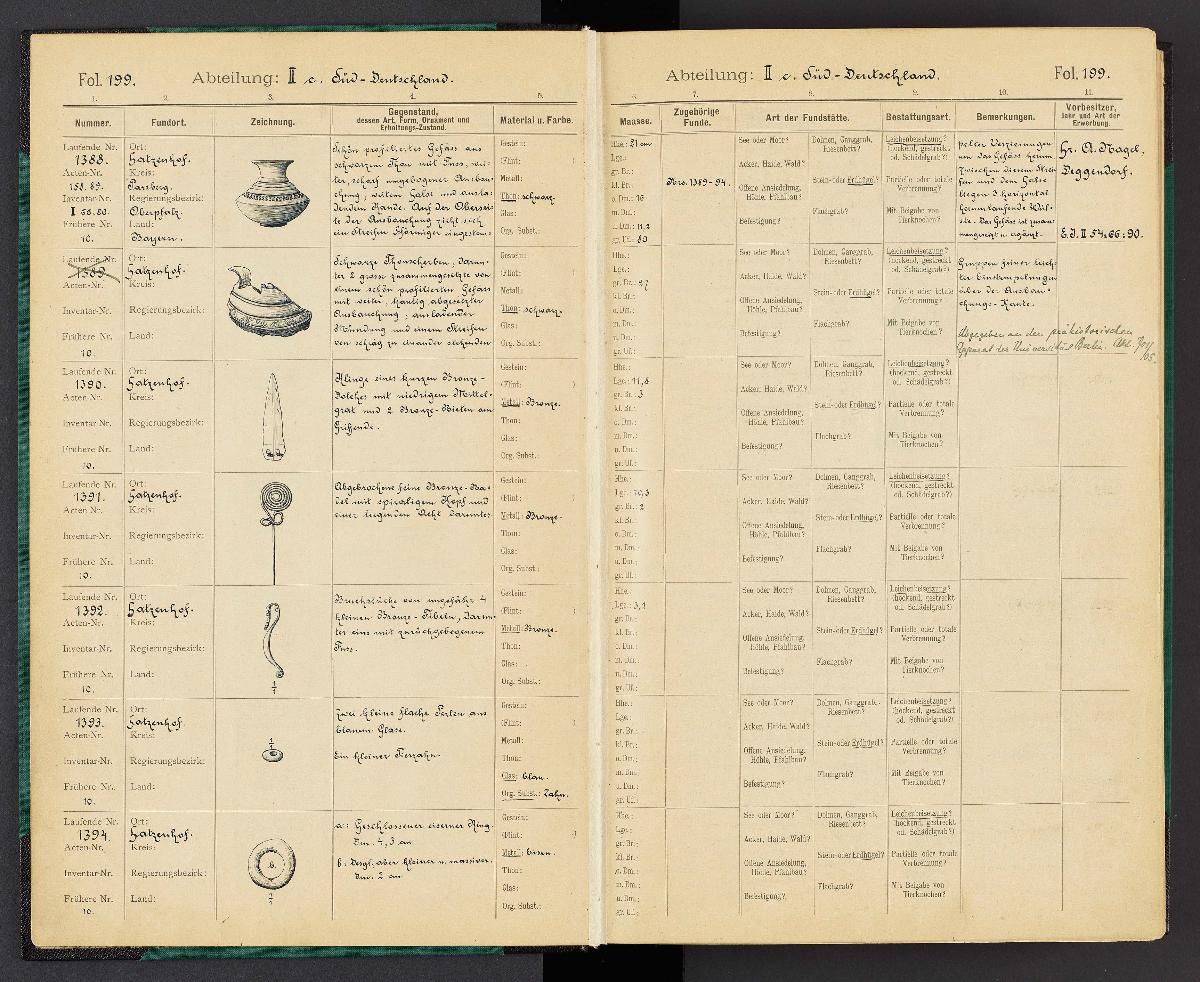 Fol. 199. Abteilung: II c. Süd-Deutschland.
1. 2. 3. 4. 5.
Nummer. Fundort. Zeichnung. Gegenstand, dessen Art, Form, Ornament und Erhaltungs-Zustand. Material u. Farbe.
Laufende Nr.
1388.
Acten-Nr.
158. 89.
Inventar-Nr.
I 56. 80.
Frühere Nr.
10.
Ort:
Hatzenhof.
Kreis:
Parsberg.
Regierungsbezirk:
Oberpfalz.
Land:
Bayern.
Schön profiliertes Gefäss aus
schwarzem Thon mit Fuss, wei-
ter, scharf umgebogener Ausbau-
chung, weitem Hals und ausla-
dendem Rande. Auf der Obersei-
te der Ausbauchung zieht sich
ein Streifen
Gestein:
(Flint: )
Metall:
Thon: schwarz.
Glas:
Org. Subst.:
Laufende Nr.
1389.
Acten-Nr.
Inventar-Nr.
Frühere Nr.
10.
Ort:
Hatzenhof.
Kreis:
Regierungsbezirk:
Land:
Schwarze Thonscherben, darun-
ter 2 grosse zusammengesetzte von
einem schön profilierten Gefäss
mit weiter, kantig abgesetzter
Ausbauchung, ausladender
Mündung und einem Streifen
von schräg zu einander stehenden
Gestein:
(Flint: )
Metall:
Thon: schwarz.
Glas:
Org. Subst.:
Laufende Nr.
1390.
Acten-Nr.
Inventar-Nr.
Frühere Nr.
10.
Ort:
Hatzenhof.
Kreis:
Regierungsbezirk:
Land:
Klinge eines kurzen Bronze-
Dolches mit niedrigem Mittel-
grat und 2 Bronze-Nieten am
Griffende.
Gestein:
(Flint: )
Metall: Bronze.
Thon:
Glas:
Org. Subst.:
Laufende Nr.
1391.
Acten-Nr.
Inventar-Nr.
Frühere Nr.
10.
Ort:
Hatzenhof.
Kreis:
Regierungsbezirk:
Land:
Abgebrochene feine Bronze-Na-
del mit spiraligem Kopf und
einer liegenden Acht darunter
Gestein:
(Flint: )
Metall: Bronze.
Thon:
Glas:
Org. Subst.:
Laufende Nr.
1392.
Acten-Nr.
Inventar-Nr.
Frühere Nr.
10.
Ort:
Hatzenhof.
Kreis:
Regierungsbezirk:
Land:
1/1
Bruchstücke von ungefähr 4
kleinen Bronze-Fibeln, darun-
ter eins mit zurückgebogenem
Fuss.
Gestein:
(Flint: )
Metall: Bronze.
Thon:
Glas:
Org. Subst.:
Laufende Nr.
1393.
Acten-Nr.
Inventar-Nr.
Frühere Nr.
10.
Ort:
Hatzenhof.
Kreis:
Regierungsbezirk:
Land:
1/1
Zwei kleine flache Perlen aus
blauem Glase.
Ein kleiner Tierzahn.
Gestein:
(Flint: )
Metall:
Thon:
Glas: blau.
Org. Subst.: Zahn.
Laufende Nr.
1394.
Acten-Nr.
Inventar-Nr.
Frühere Nr.
10.
Ort:
Hatzenhof.
Kreis:
Regierungsbezirk:
Land:
b.
a: Geschlossener eiserner Ring.
Dm. 4,3 cm
b: Desgl. aber kleiner u. massiver.
Dm. 2 cm
Gestein:
(Flint: )
Metall: Eisen.
Thon:
Glas:
Org. Subst.:
Abteilung: II c. Süd-Deutschland. Fol. 199.
7. 8. 9. 10. 11.
Maasse. Zugehörige Funde. Art der Fundstätte. Bestattungsart. Bemerkungen. Vorbesitzer, Jahr und Art der Erwerbung.
Hhe.: 21 cm
Lge.:
gr. Br.:
kl. Br.:
o. Dm.: 16
m. Dm.:
u. Dm.: 11,2
gr. Uf.: 80
Nro. 1389-94.
See oder Moor?
Acker, Haide, Wald?
Offene Ansiedelung, Höhle, Pfahlbau?
Befestigung?
Dolmen, Ganggrab, Riesenbett?
Stein- oder Erdhügel?
Flachgrab?
Leichenbeisetzung? (hockend, gestreckt od. Schädelgrab?)
Partielle oder totale Verbrennung?
Mit Beigabe von Tierknochen?
um das Gefäss herum
Zwischen diesem Strei-
fen und dem Halse
liegen 3 horizontal
herumlaufende Wül-
ste. Das Gefäss ist zusam-
mengesetzt u. ergänzt.
Hr. A. Nagel,
Deggendorf.
E.J. II 54. 66: 90.
Hhe.:
Lge.:
gr. Br.: 27
kl. Br.:
o. Dm.:
m. Dm.:
u. Dm.:
gr. Uf.:
See oder Moor?
Acker, Haide, Wald?
Offene Ansiedelung, Höhle, Pfahlbau?
Befestigung?
Dolmen, Ganggrab, Riesenbett?
Stein- oder Erdhügel?
Flachgrab?
Leichenbeisetzung? (hockend, gestreckt od. Schädelgrab?)
Partielle oder totale Verbrennung?
Mit Beigabe von Tierknochen?
Gruppen feiner leich-
ter Einstempelungen
über der Ausbau-
chungs-Kante.
Abgegeben an den prähistorischen
Apparat der Universität Berlin.
Hhe.:
Lge.: 11,8
gr. Br.: 3
kl. Br.:
o. Dm.:
m. Dm.:
u. Dm.:
gr. Uf.:
See oder Moor?
Acker, Haide, Wald?
Offene Ansiedelung, Höhle, Pfahlbau?
Befestigung?
Dolmen, Ganggrab, Riesenbett?
Stein- oder Erdhügel?
Flachgrab?
Leichenbeisetzung? (hockend, gestreckt od. Schädelgrab?)
Partielle oder totale Verbrennung?
Mit Beigabe von Tierknochen?
Hhe.:
Lge.: 20,3
gr. Br.: 2
kl. Br.:
o. Dm.:
m. Dm.:
u. Dm.:
gr. Uf.:
See oder Moor?
Acker, Haide, Wald?
Offene Ansiedelung, Höhle, Pfahlbau?
Befestigung?
Dolmen, Ganggrab, Riesenbett?
Stein- oder Erdhügel?
Flachgrab?
Leichenbeisetzung? (hockend, gestreckt od. Schädelgrab?)
Partielle oder totale Verbrennung?
Mit Beigabe von Tierknochen?
Hhe.:
Lge.: 3,1
gr. Br.:
kl. Br.:
o. Dm.:
m. Dm.:
u. Dm.:
gr. Uf.:
See oder Moor?
Acker, Haide, Wald?
Offene Ansiedelung, Höhle, Pfahlbau?
Befestigung?
Dolmen, Ganggrab, Riesenbett?
Stein- oder Erdhügel?
Flachgrab?
Leichenbeisetzung? (hockend, gestreckt od. Schädelgrab?)
Partielle oder totale Verbrennung?
Mit Beigabe von Tierknochen?
Hhe.:
Lge.:
gr. Br.:
kl. Br.:
o. Dm.:
m. Dm.:
u. Dm.:
gr. Uf.:
See oder Moor?
Acker, Haide, Wald?
Offene Ansiedelung, Höhle, Pfahlbau?
Befestigung?
Dolmen, Ganggrab, Riesenbett?
Stein- oder Erdhügel?
Flachgrab?
Leichenbeisetzung? (hockend, gestreckt od. Schädelgrab?)
Partielle oder totale Verbrennung?
Mit Beigabe von Tierknochen?
Hhe.:
Lge.:
gr. Br.:
kl. Br.:
o. Dm.:
m. Dm.:
u. Dm.:
gr. Uf.:
See oder Moor?
Acker, Haide, Wald?
Offene Ansiedelung, Höhle, Pfahlbau?
Befestigung?
Dolmen, Ganggrab, Riesenbett?
Stein- oder Erdhügel?
Flachgrab?
Leichenbeisetzung? (hockend, gestreckt od. Schädelgrab?)
Partielle oder totale Verbrennung?
Mit Beigabe von Tierknochen?